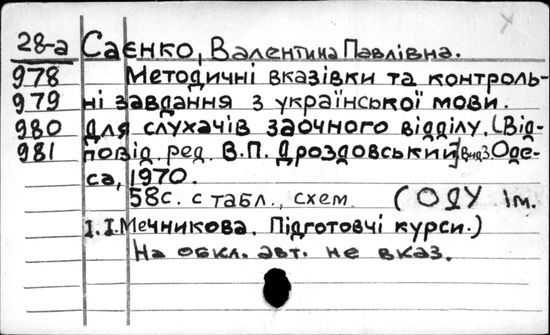 28-а Саєнко, Валентина Павлівна.
978 Методичні вказівки та контроль-
979 ні завдання з української мови.
980 Для слухачів заочного відділу. [Від-
981 повід. ред. В.П. Дроздовський]. Вид 3. Оде-
са, 1970.
58с. с табл., схем (ОДУ ім.
І.І. Мечникова. Підготовчі курси.)
На обкл. авт. не вказ.